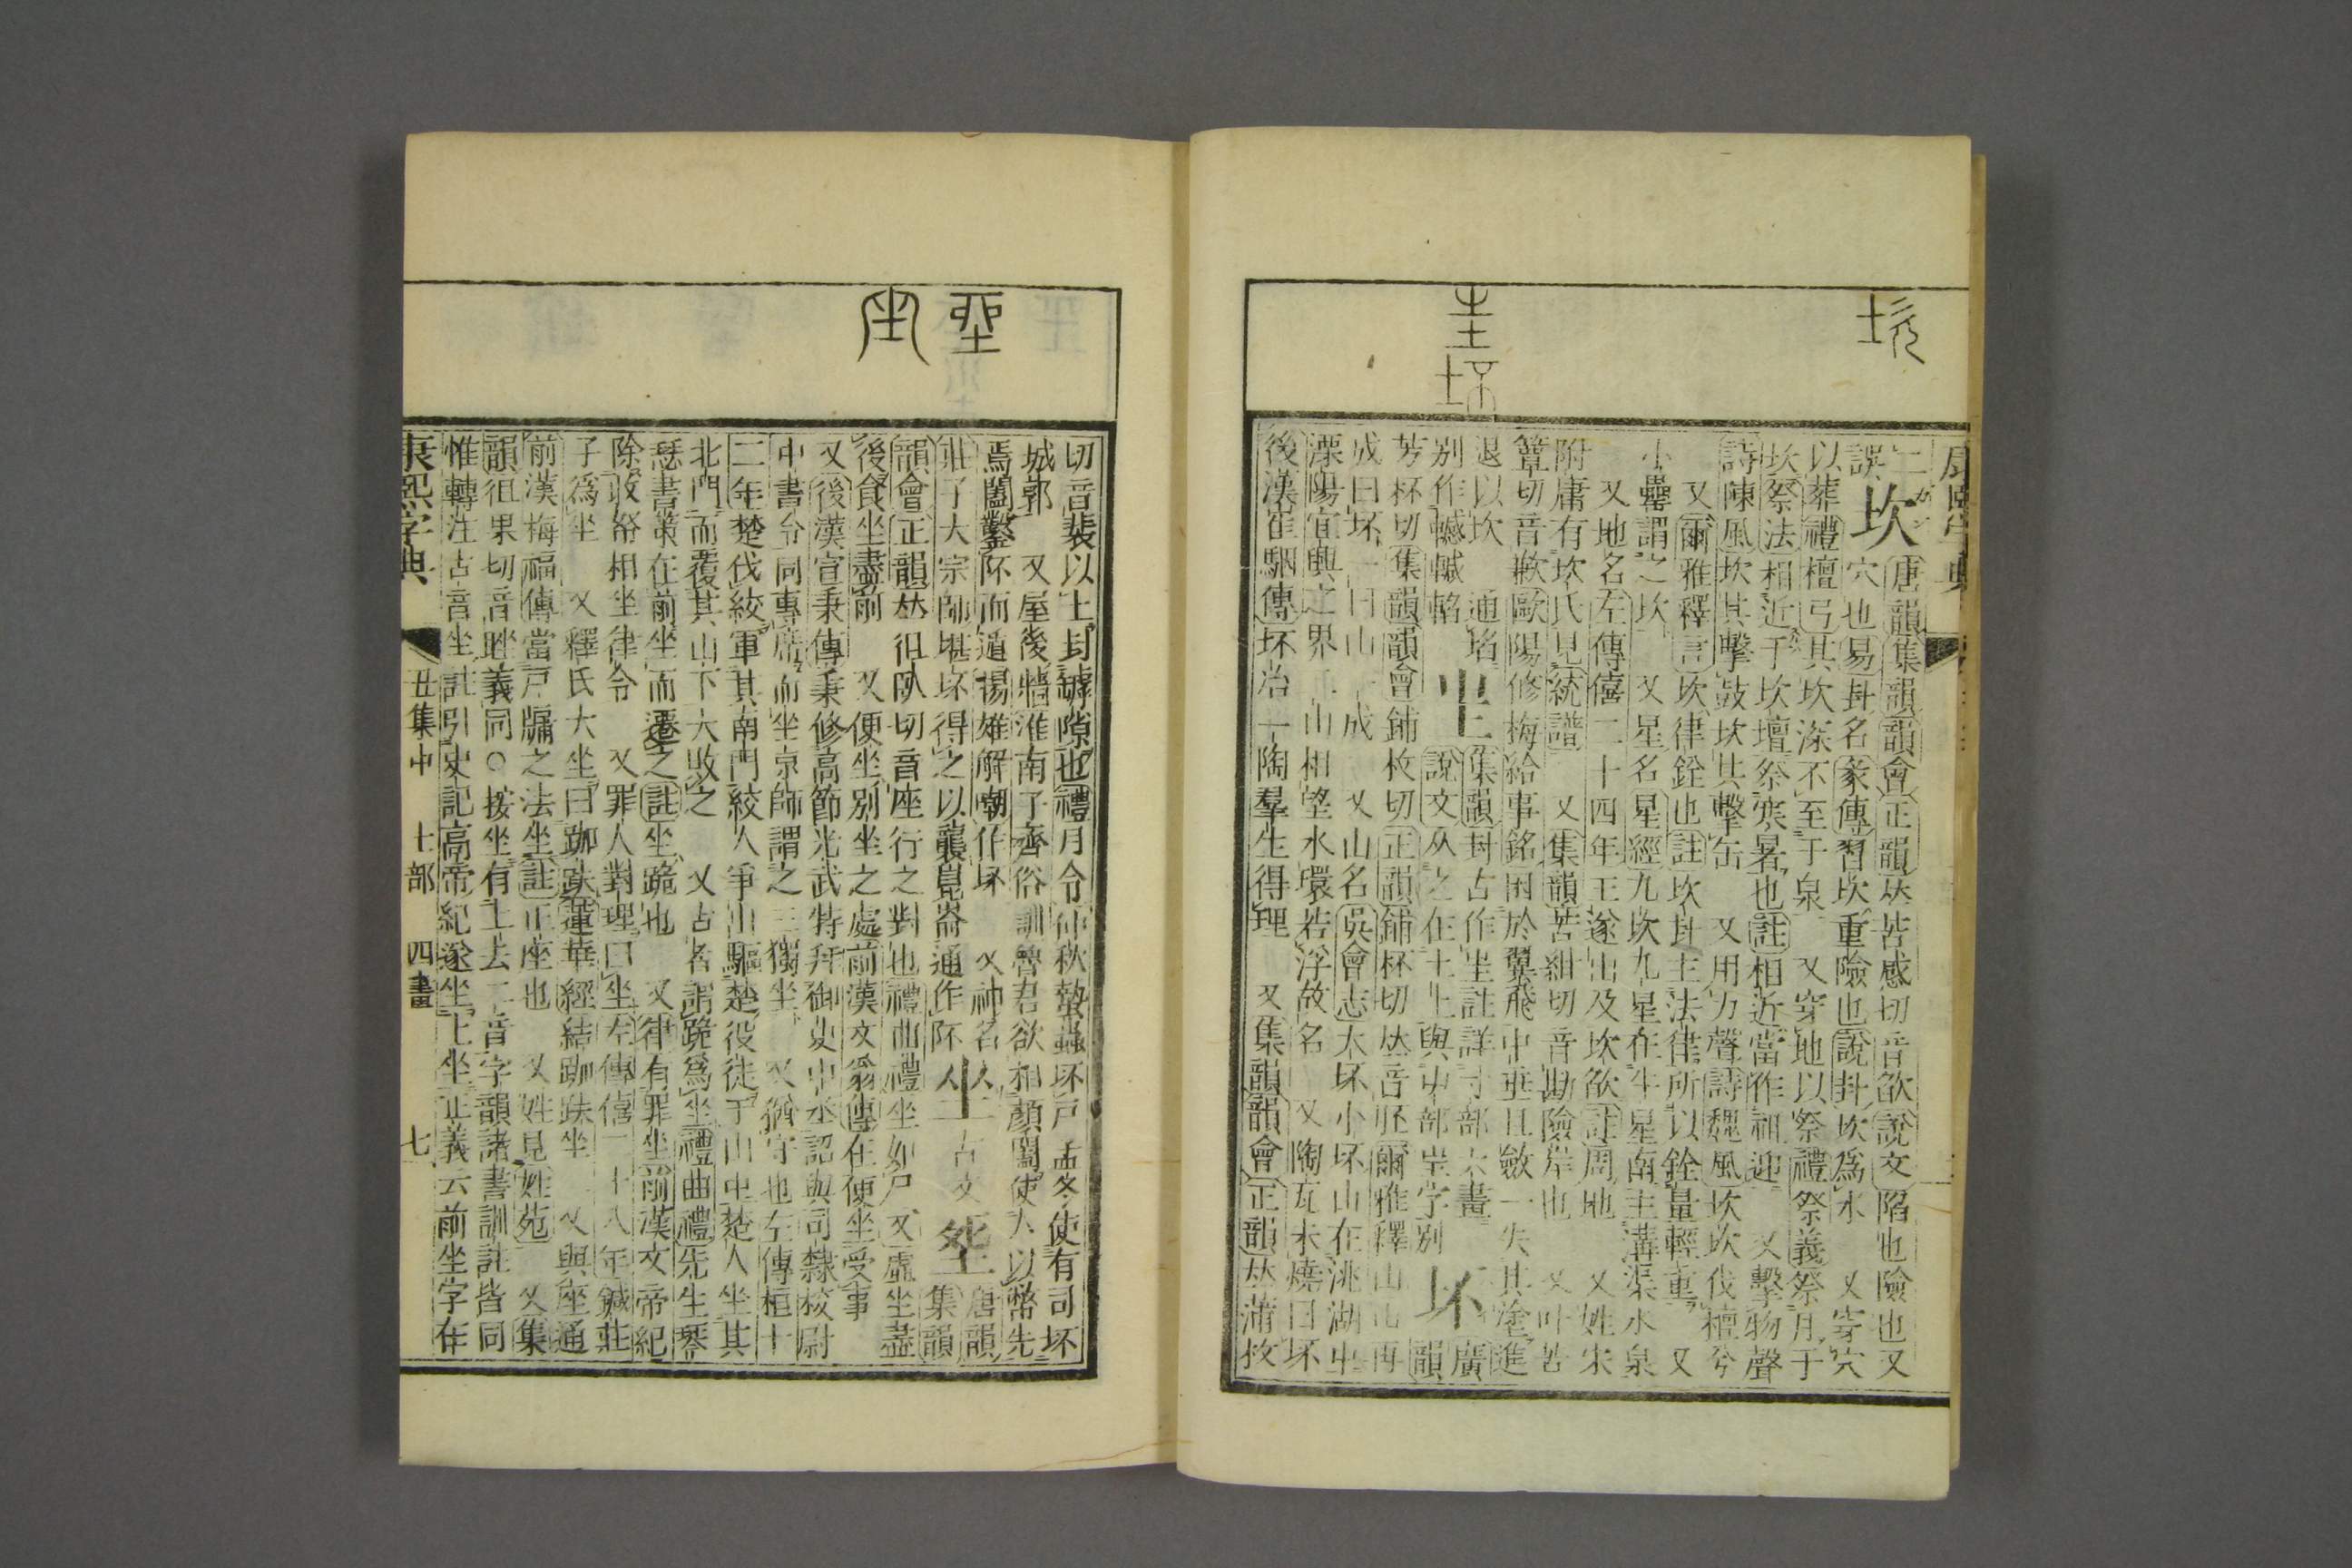 二
誤
坎
唐韻集韻韻會正韻𠀤苦感切音欿說文陷也險也又
穴也易卦名彖傳習坎重險也說卦坎爲水 又穿穴
以葬禮檀弓其坎深不至于泉 又穿地以祭禮祭義祭月于
坎祭法相近于坎壇祭寒暑也註相近當作祖迎 又擊物聲
詩陳風坎其擊鼓坎其擊缶 又用力聲詩魏風坎坎伐檀兮
又爾雅釋言坎律銓也註坎卦主法律所以銓量輕重 又
小罍謂之坎 又星名星經九坎九星在牛星南主溝渠水泉
又地名左傳僖二十四年王遂出及坎欿註周地 又姓宋
附庸有坎氏見統譜 又集韻苦紺切音勘險岸也 又叶苦
簟切音歉歐陽修梅給事銘困於翼飛中垂且斂一失其塗進
退以坎 通埳
别作轗轞輡
㘴
集韻封古作㘴註詳寸部六畫
說文从之在土上與屮部㞷字別
坏
廣
韻
芳杯切集韻韻會鋪枚切正韻鋪杯切𠀤音胚爾雅釋山山再
成曰坏一曰山一成 又山名吳會志大坏小坏山在洮湖中
溧陽宜興之界二山相望水環若浮故名 又陶瓦未燒曰坏
後漢崔駰傳坏冶一陶羣生得理 又集韻韻會正韻𠀤蒲枚
切音裴以土封罅隙也禮月令仲秋蟄蟲坏戸孟冬使有司坏
城郭 又屋後牆淮南子齊俗訓魯君欲相顏闔使人以幣先
焉闔鑿阫而遁揚雄解嘲作坏 又神名
莊子大宗師堪坏得之以襲崑崙通作阫
坐
古文
𡋲
唐韻
集韻
韻會正韻𠀤徂臥切音座行之對也禮曲禮坐如尸 又虛坐盡
後食坐盡前 又便坐別坐之處前漢文翁傳在便坐受事
又後漢宣秉傳秉修高節光武特拜御史中丞詔與司隸校尉
中書令同專席而坐京師謂之三獨坐 又猶守也左傳桓十
二年楚伐絞軍其南門絞人爭出驅楚役徒于山中楚人坐其
北門而覆其山下大敗之 又古者謂跪爲坐禮曲禮先生琴
瑟書策在前坐而遷之註坐跪也 又律有罪坐前漢文帝紀
除收帑相坐律令 又罪人對理曰坐左傳僖二十八年鍼莊
子爲坐 又釋氏大坐曰跏趺蓮華經結跏趺坐 又與座通
前漢梅福傳當戸牖之法坐註正座也 又姓見姓苑 又集
韻徂果切音䂳義同○按坐有上去二音字韻諸書訓註皆同
惟轉注古音坐註引史記高帝紀遂坐上坐正義云前坐字在
康熙字典 丑集中 土部 四畫 七